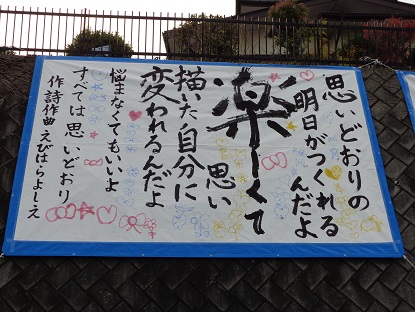 思いどおりの
明日がつくれる
んだよ
楽しくて
思い
描いた自分に
変われるんだよ
悩まなくてもいいよ
すべては思いどおり
作詩作曲 えびはらよしえ